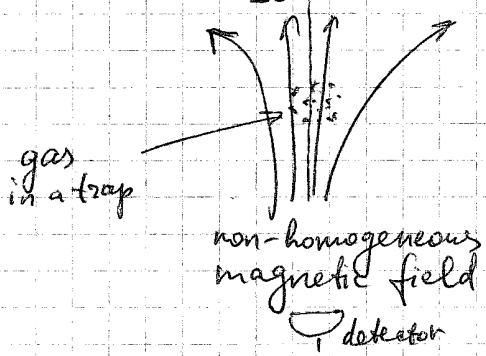 gas
in a trap
non-homogeneous
magnetic field
detector